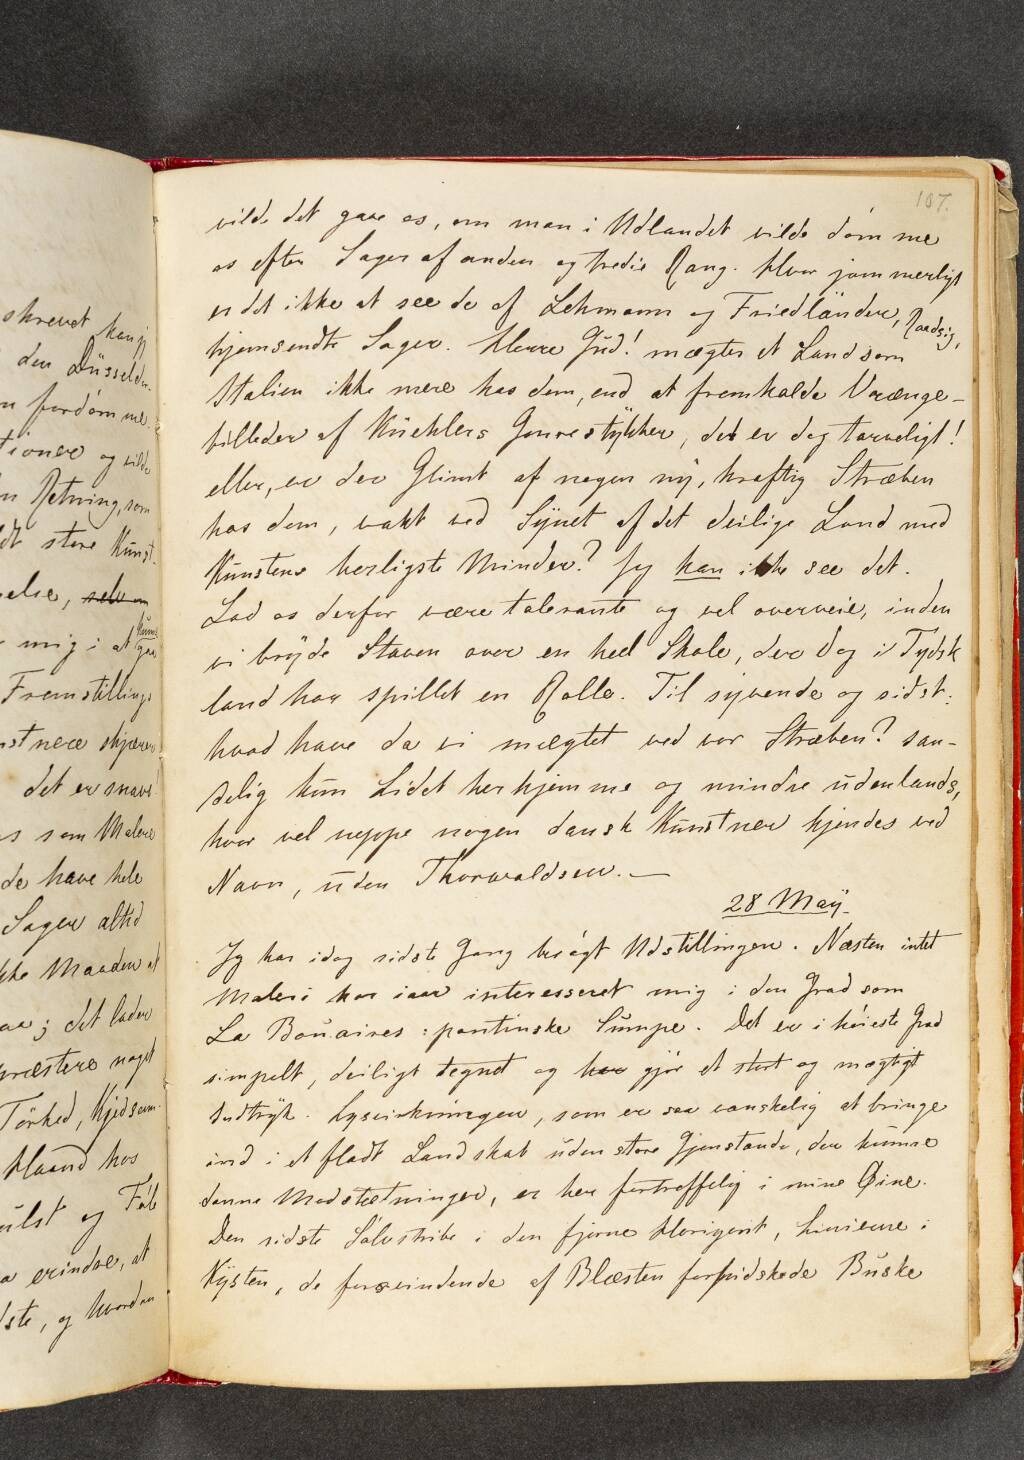 107.
vilde det gaae os, om man i Udlandet vilde dømme
os efter Sager af anden og tredie Rang. Hvor jammerligt
er det ikke at see de af Lehmann og Friedländer, Raadsig,
hjemsendte Sager. Herre Gud! mægter et Land som
Italien ikke mere hos dem, end at fremkalde Vrænge-
billeder af Küchlers Genrestykker, det er dog tarveligt!
eller, er der Glimt af nogen ny, kraftig Stræben
hos dem, vakt ved Synet af det deilige Land med
Kunstens herligste Minder? Jeg kan ikke see det.
Lad os derfor være tolerante og vel overveie, inden
vi bryde Staven over en heel Skole, der dog i Tydsk
land har spillet en Rolle. Til syvende og sidst:
hvad have da vi mægtet ved vor Stræben? san-
delig kun Lidet herhjemme og mindre udenlands,
hvor vel neppe nogen dansk Kunstner kjendes ved
Navn, uden Thorvaldsen. —
28 May.
Jeg har idag sidste Gang besøgt Udstillingen. Næsten intet
Maleri har iaar interesseret mig i den Grad som
La Bouaires: pontinske Sumpe. Det er i høieste Grad
simpelt, deiligt tegnet og har gjør et stort og mægtigt
Indtryk. Lysvirkningen, som er saa vanskelig at bringe
ind i et fladt Landskab uden store Gjenstande, der kunne
danne Modsætninger, er her fortræffelig i mine Øine.
Den sidste Sølvstribe i den fjerne Horizont, Linierne i
Kysten, de forsvindende af Blæsten forpidskede Buske
skrevet kan j
den Düsseldo
fordømme
tioner og vilde
Retning, som
dt store Kunst
else, selv om
mig i at gaae
Fremstillings
stnere skjærer
det er snavs
s som Malere
de have hele
Sager altid
kke Maaden at
aa; det lader
præstere noget
Tørhed, Kjedsom-
Haand hos
ulst og Føle
erindre, at
ste, og hvordan